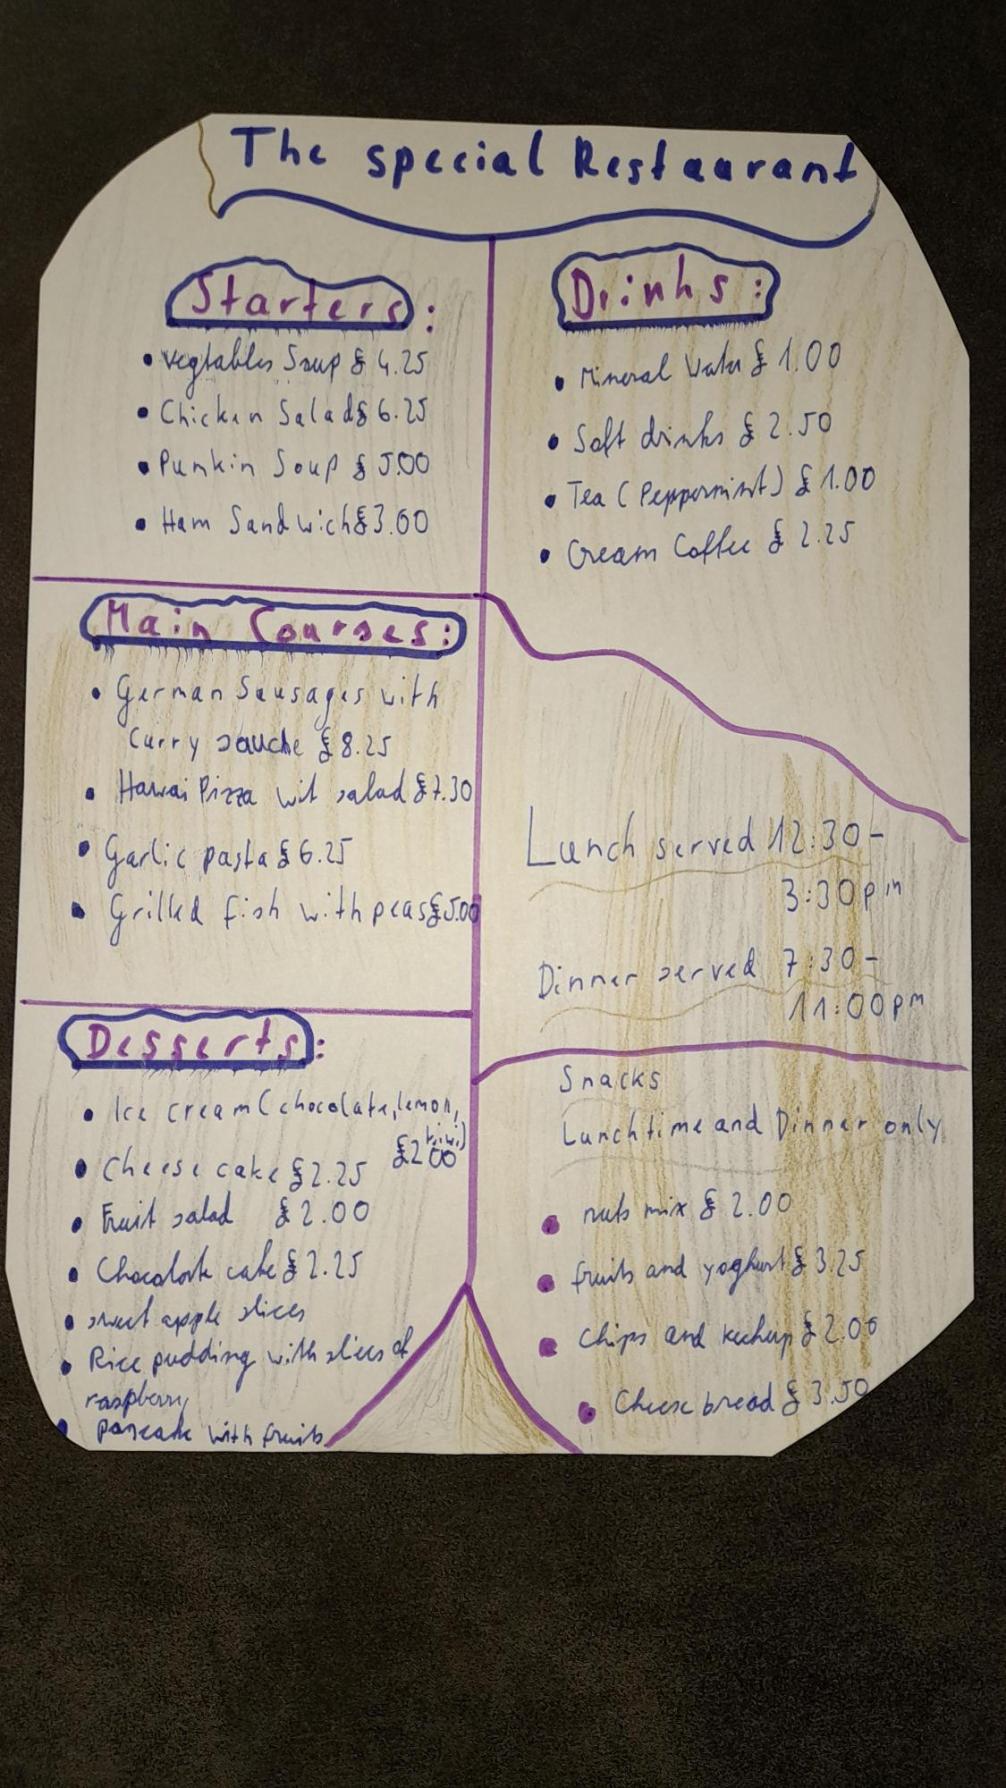 The special Restaurant
Starters:
• Vegtables Soup £ 4.25
• Chicken Salad £ 6.25
• Punkin Soup £ 5.00
• Ham Sandwich £ 3.00
Main Courses:
• German Sausages with
curry sauche £ 8.25
• Hawai Pizza wit salad £ 7.30
• Garlic pasta £ 6.25
• Grilled fish with peas £ 5.00
Desserts:
• Ice cream (chocolate, lemon,
kiwi)
£ 2.00
• Cheese cake £ 2.25
• Fruit salad £ 2.00
• Chocolate cake £ 2.25
• sweet apple slices
• Rice pudding with slices of
raspberry
• pancake with fruits
Drinks:
• Mineral Water £ 1.00
• Soft drinks £ 2.50
• Tea (Peppermint) £ 1.00
• Cream Coffee £ 2.25
Lunch served 12:30-
3:30pm
Dinner served 7:30-
11:00pm
Snacks
Lunchtime and Dinner only
• nuts mix £ 2.00
• fruits and yoghurt £ 3.25
• Chips and kechup £ 2.00
• Cheese bread £ 3.50